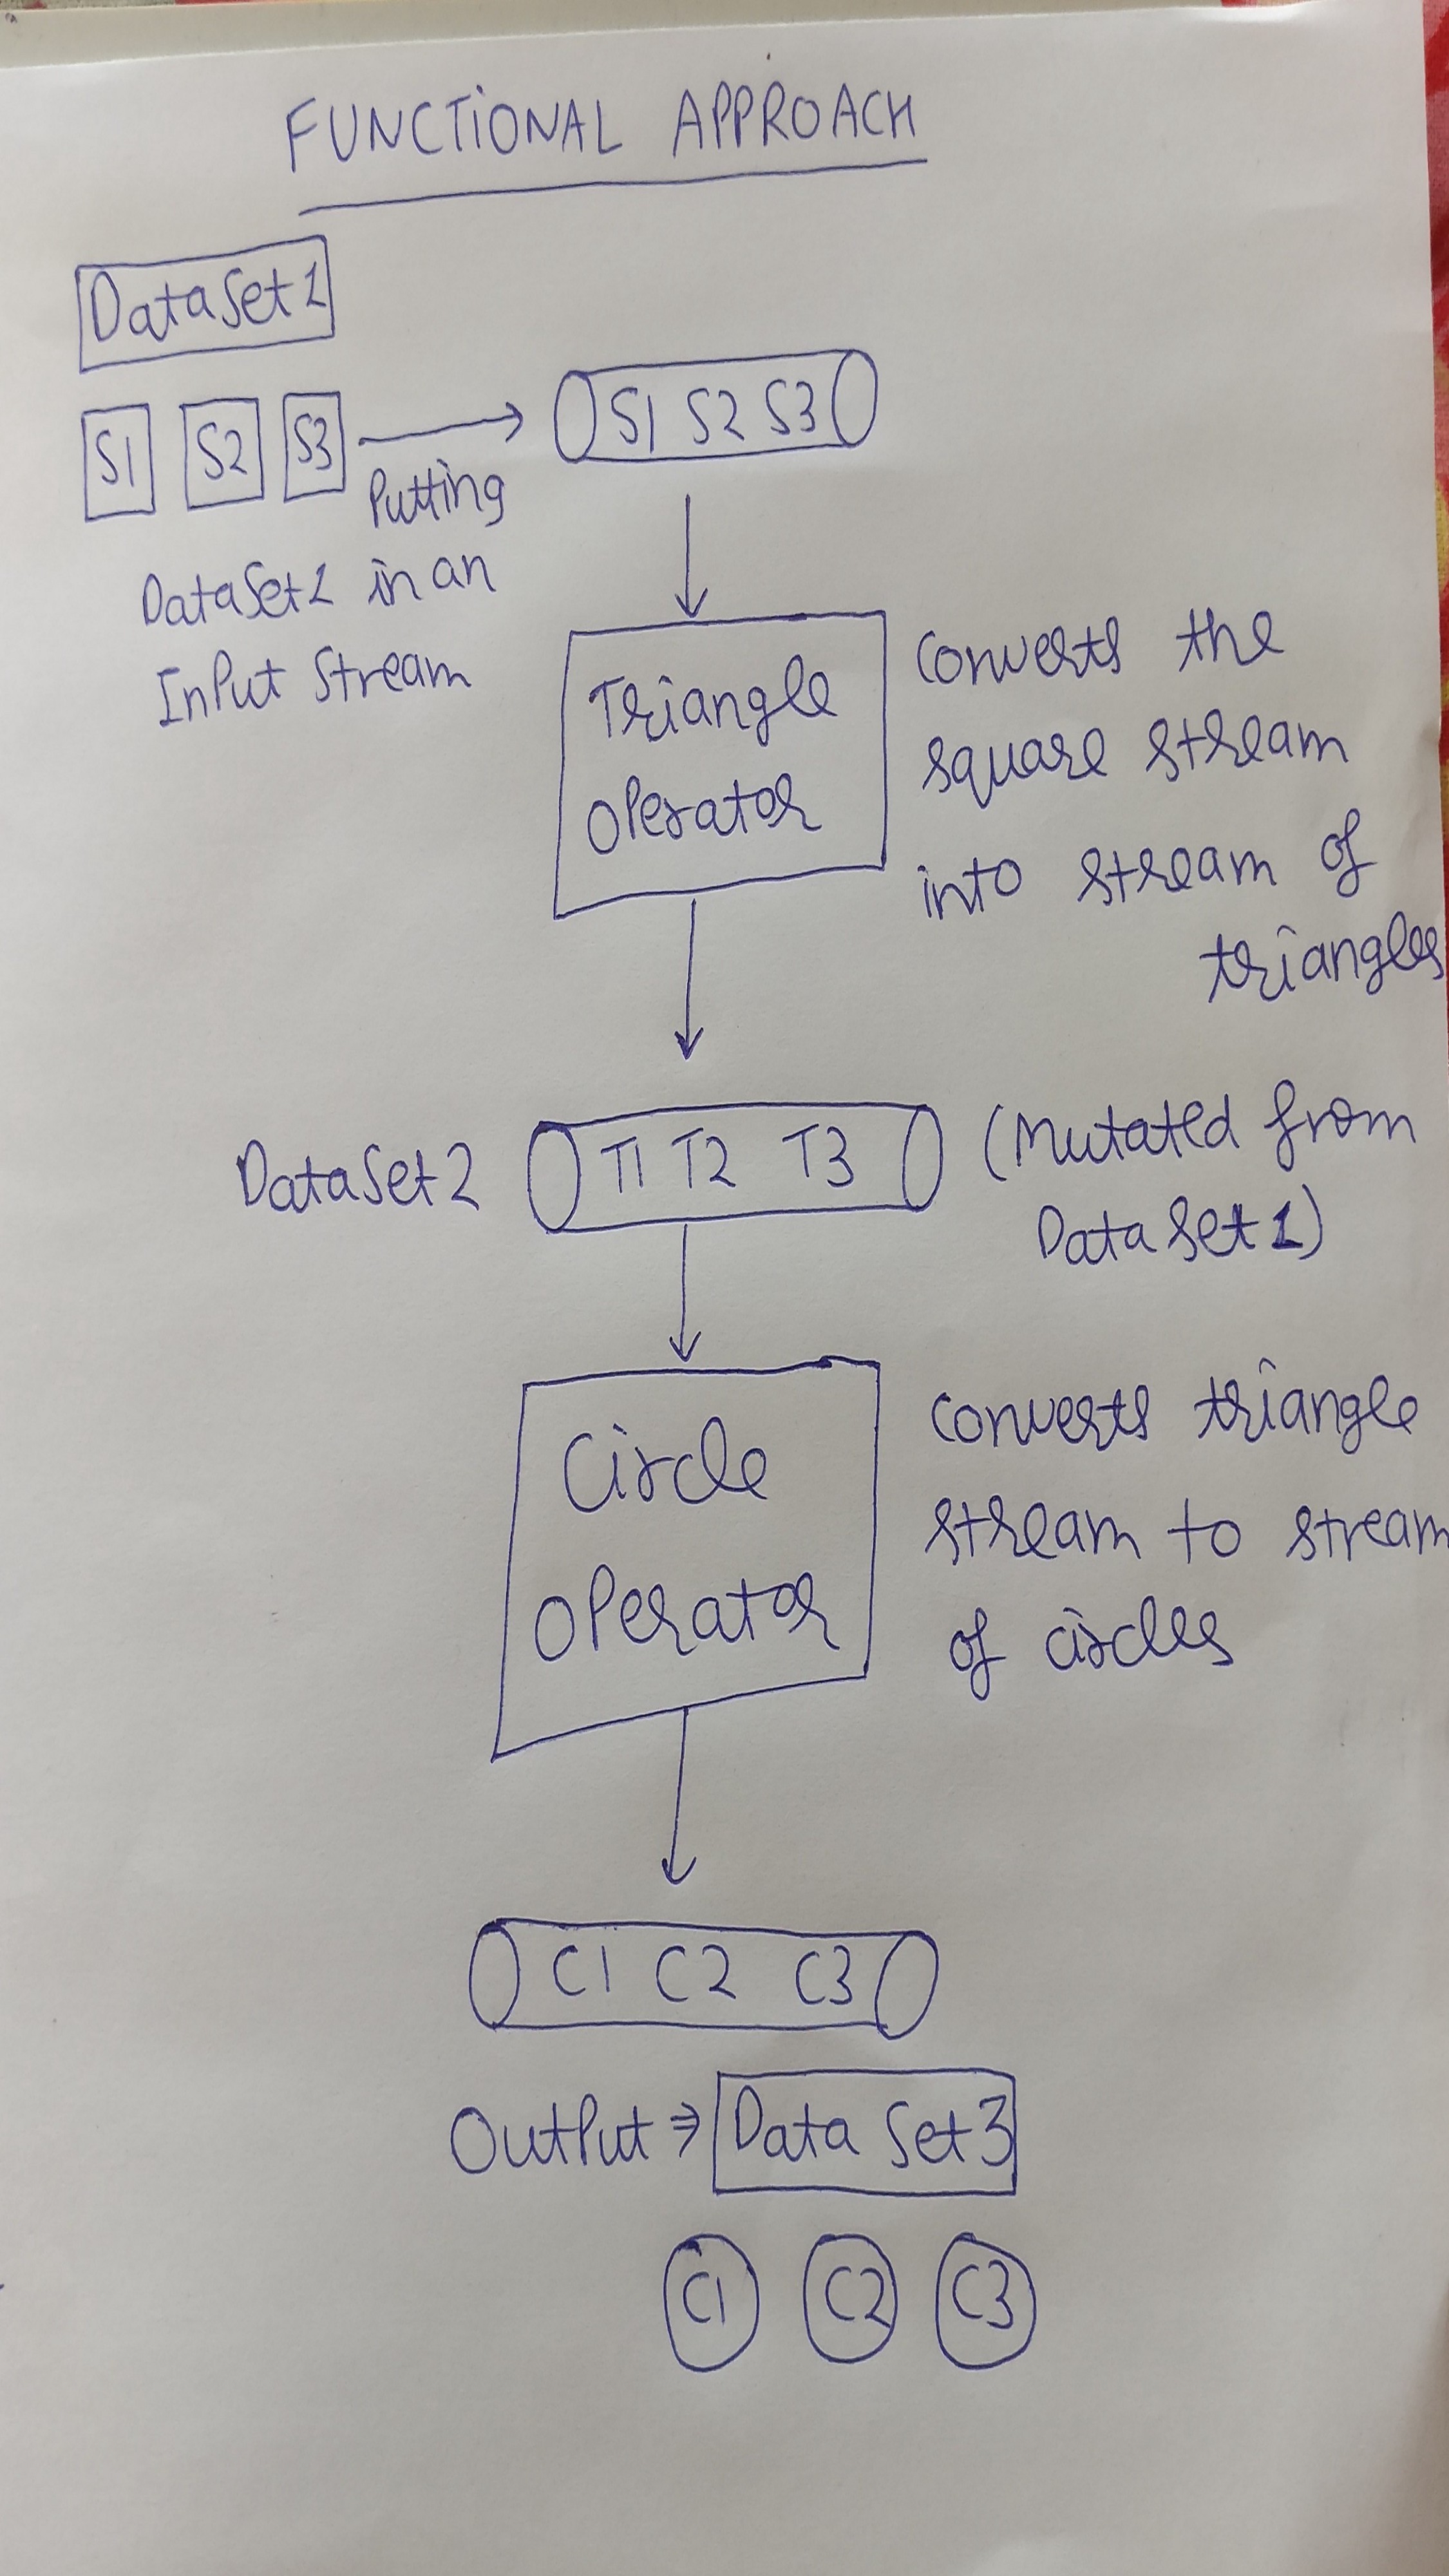 FUNCTIONAL APPROACH
DataSet1
S1 S2 S3
S1 S2 S3
Putting
DataSet1 in an
InPut Stream
Triangle
OPerator
converts the
square stream
into stream of
triangles
DataSet2
T1 T2 T3
(Mutated from
DataSet1)
Circle
OPerator
converts triangle
stream to stream
of circles
C1 C2 C3
OutPut ⇒ Data Set3
C1 C2 C3